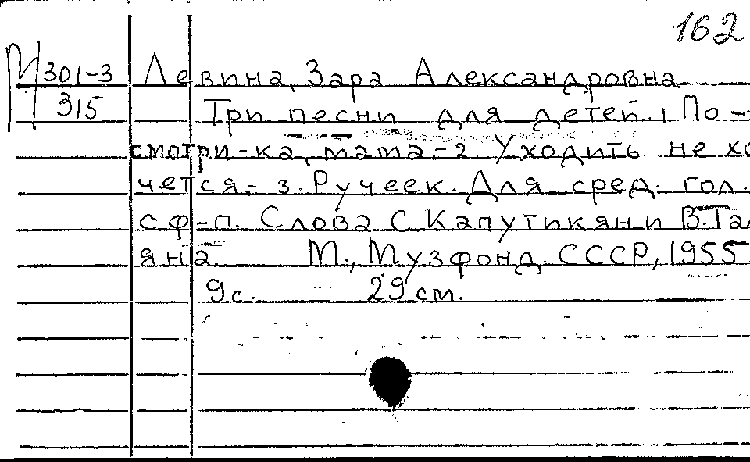 162
М 301-3 Левина, Зара Александровна
315 Три песни для детей. 1 По-
смотри-ка, мама-2 Уходить не хо
чется- 3. Ручеек. Для сред. гол.
с ф-п. Слова С Капутикян и В. Та
яна. М., Музфонд СССР, 1955
9с. 29 см.